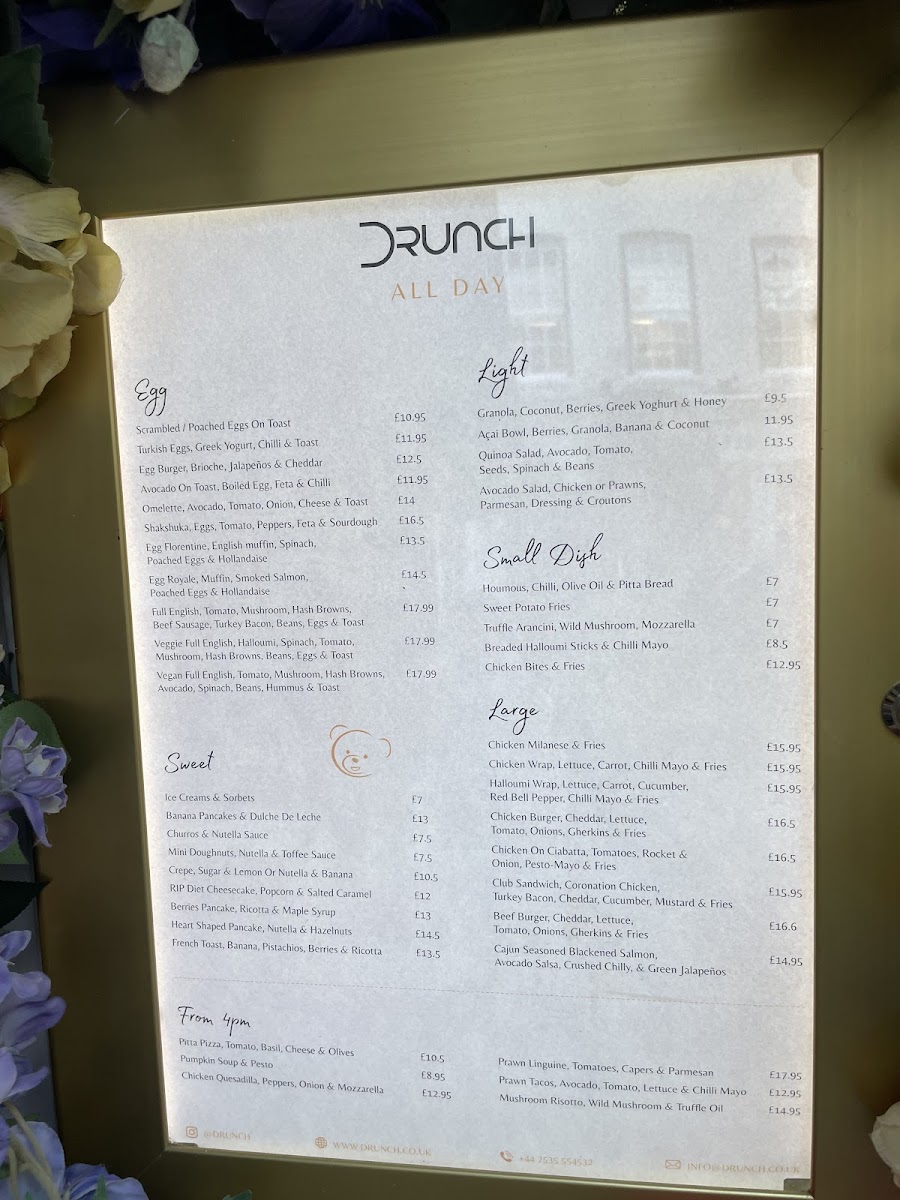 DRUNCH
ALL DAY
Egg
Scrambled / Poached Eggs On Toast £10.95
Turkish Eggs, Greek Yogurt, Chilli & Toast £11.95
Egg Burger, Brioche, Jalapeños & Cheddar £12.5
Avocado On Toast, Boiled Egg, Feta & Chilli £11.95
Omelette, Avocado, Tomato, Onion, Cheese & Toast £14
Shakshuka, Eggs, Tomato, Peppers, Feta & Sourdough £16.5
Egg Florentine, English muffin, Spinach, £13.5
Poached Eggs & Hollandaise
Egg Royale, Muffin, Smoked Salmon, £14.5
Poached Eggs & Hollandaise
Full English, Tomato, Mushroom, Hash Browns, £17.99
Beef Sausage, Turkey Bacon, Beans, Eggs & Toast
Veggie Full English, Halloumi, Spinach, Tomato, £17.99
Mushroom, Hash Browns, Beans, Eggs & Toast
Vegan Full English, Tomato, Mushroom, Hash Browns, £17.99
Avocado, Spinach, Beans, Hummus & Toast
Sweet
Ice Creams & Sorbets £7
Banana Pancakes & Dulche De Leche £13
Churros & Nutella Sauce £7.5
Mini Doughnuts, Nutella & Toffee Sauce £7.5
Crepe, Sugar & Lemon Or Nutella & Banana £10.5
RIP Diet Cheesecake, Popcorn & Salted Caramel £12
Berries Pancake, Ricotta & Maple Syrup £13
Heart Shaped Pancake, Nutella & Hazelnuts £14.5
French Toast, Banana, Pistachios, Berries & Ricotta £13.5
Light
Granola, Coconut, Berries, Greek Yoghurt & Honey £9.5
Açai Bowl, Berries, Granola, Banana & Coconut 11.95
Quinoa Salad, Avocado, Tomato, £13.5
Seeds, Spinach & Beans
Avocado Salad, Chicken or Prawns, £13.5
Parmesan, Dressing & Croutons
Small Dish
Houmous, Chilli, Olive Oil & Pitta Bread £7
Sweet Potato Fries £7
Truffle Arancini, Wild Mushroom, Mozzarella £7
Breaded Halloumi Sticks & Chilli Mayo £8.5
Chicken Bites & Fries £12.95
Large
Chicken Milanese & Fries £15.95
Chicken Wrap, Lettuce, Carrot, Chilli Mayo & Fries £15.95
Halloumi Wrap, Lettuce, Carrot, Cucumber, £15.95
Red Bell Pepper, Chilli Mayo & Fries
Chicken Burger, Cheddar, Lettuce, £16.5
Tomato, Onions, Gherkins & Fries
Chicken On Ciabatta, Tomatoes, Rocket & £16.5
Onion, Pesto-Mayo & Fries
Club Sandwich, Coronation Chicken, £15.95
Turkey Bacon, Cheddar, Cucumber, Mustard & Fries
Beef Burger, Cheddar, Lettuce, £16.6
Tomato, Onions, Gherkins & Fries
Cajun Seasoned Blackened Salmon, £14.95
Avocado Salsa, Crushed Chilly, & Green Jalapeños
From 4pm
Pitta Pizza, Tomato, Basil, Cheese & Olives £10.5
Pumpkin Soup & Pesto £8.95
Chicken Quesadilla, Peppers, Onion & Mozzarella £12.95
Prawn Linguine, Tomatoes, Capers & Parmesan £17.95
Prawn Tacos, Avocado, Tomato, Lettuce & Chilli Mayo £12.95
Mushroom Risotto, Wild Mushroom & Truffle Oil £14.95
@DRUNCH WWW.DRUNCH.CO.UK +44 7535 554532 INFO@DRUNCH.CO.UK